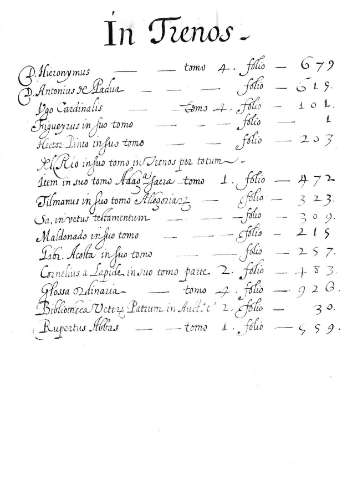 In Trenos
D. Hieronymus — — tomo 4. folio — 679
D. Antonius de Padua — — folio — 615.
Ugo Cardinalis — — tomo 4. — folio — 101.
Figueyrus in suo tomo — folio — 1
Hector Pinto in suo tomo — folio — 203
Del Rio in suo tomo in Trenos per totum
Item in suo tomo Adag. sacra tomo 1. folio — 472
Tilmanus in suo tomo Allegoria — folio — 323.
Sa, in vetus testamentum — — folio — 309.
Maldonado in suo tomo — — folio — 215
Gabr. Acosta in suo tomo — folio — 257.
Cornelius a Lapide in suo tomo parte 2. folio — 483.
Glossa ordinaria — tomo — 4. folio — 926.
Bibliotheca Veter. Patrum in Auct. t. 2. folio — 30.
Rupertus Abbas — — tomo — 1. folio — 559.